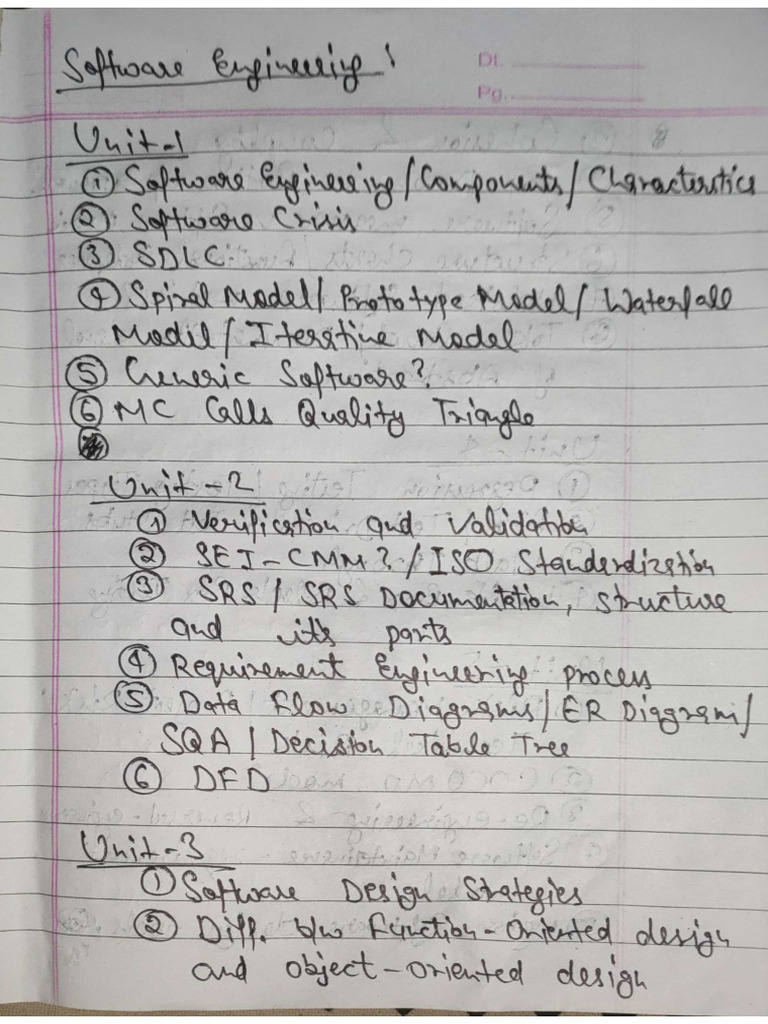 Software Engineering!
Dt.
Pg.
Unit-1
① Software Engineering/Components/Characterstics
② Software Crisis
③ SDLC
④ Spiral Model/Prototype Model/Waterfall
Model/Iterative Model
⑤ Generic Software?
⑥ MC Calls Quality Triangle
Unit-2
① Verification and Validation
② SEI-CMM?/ISO Standardization
③ SRS/SRS Documentation, structure
and its parts
④ Requirement Engineering process
⑤ Data Flow Diagrams/ER Diagram/
SQA/Decision Table Tree
⑥ DFD
Unit-3
① Software Design Strategies
② Diff. b/w Function-Oriented design
and object-oriented design